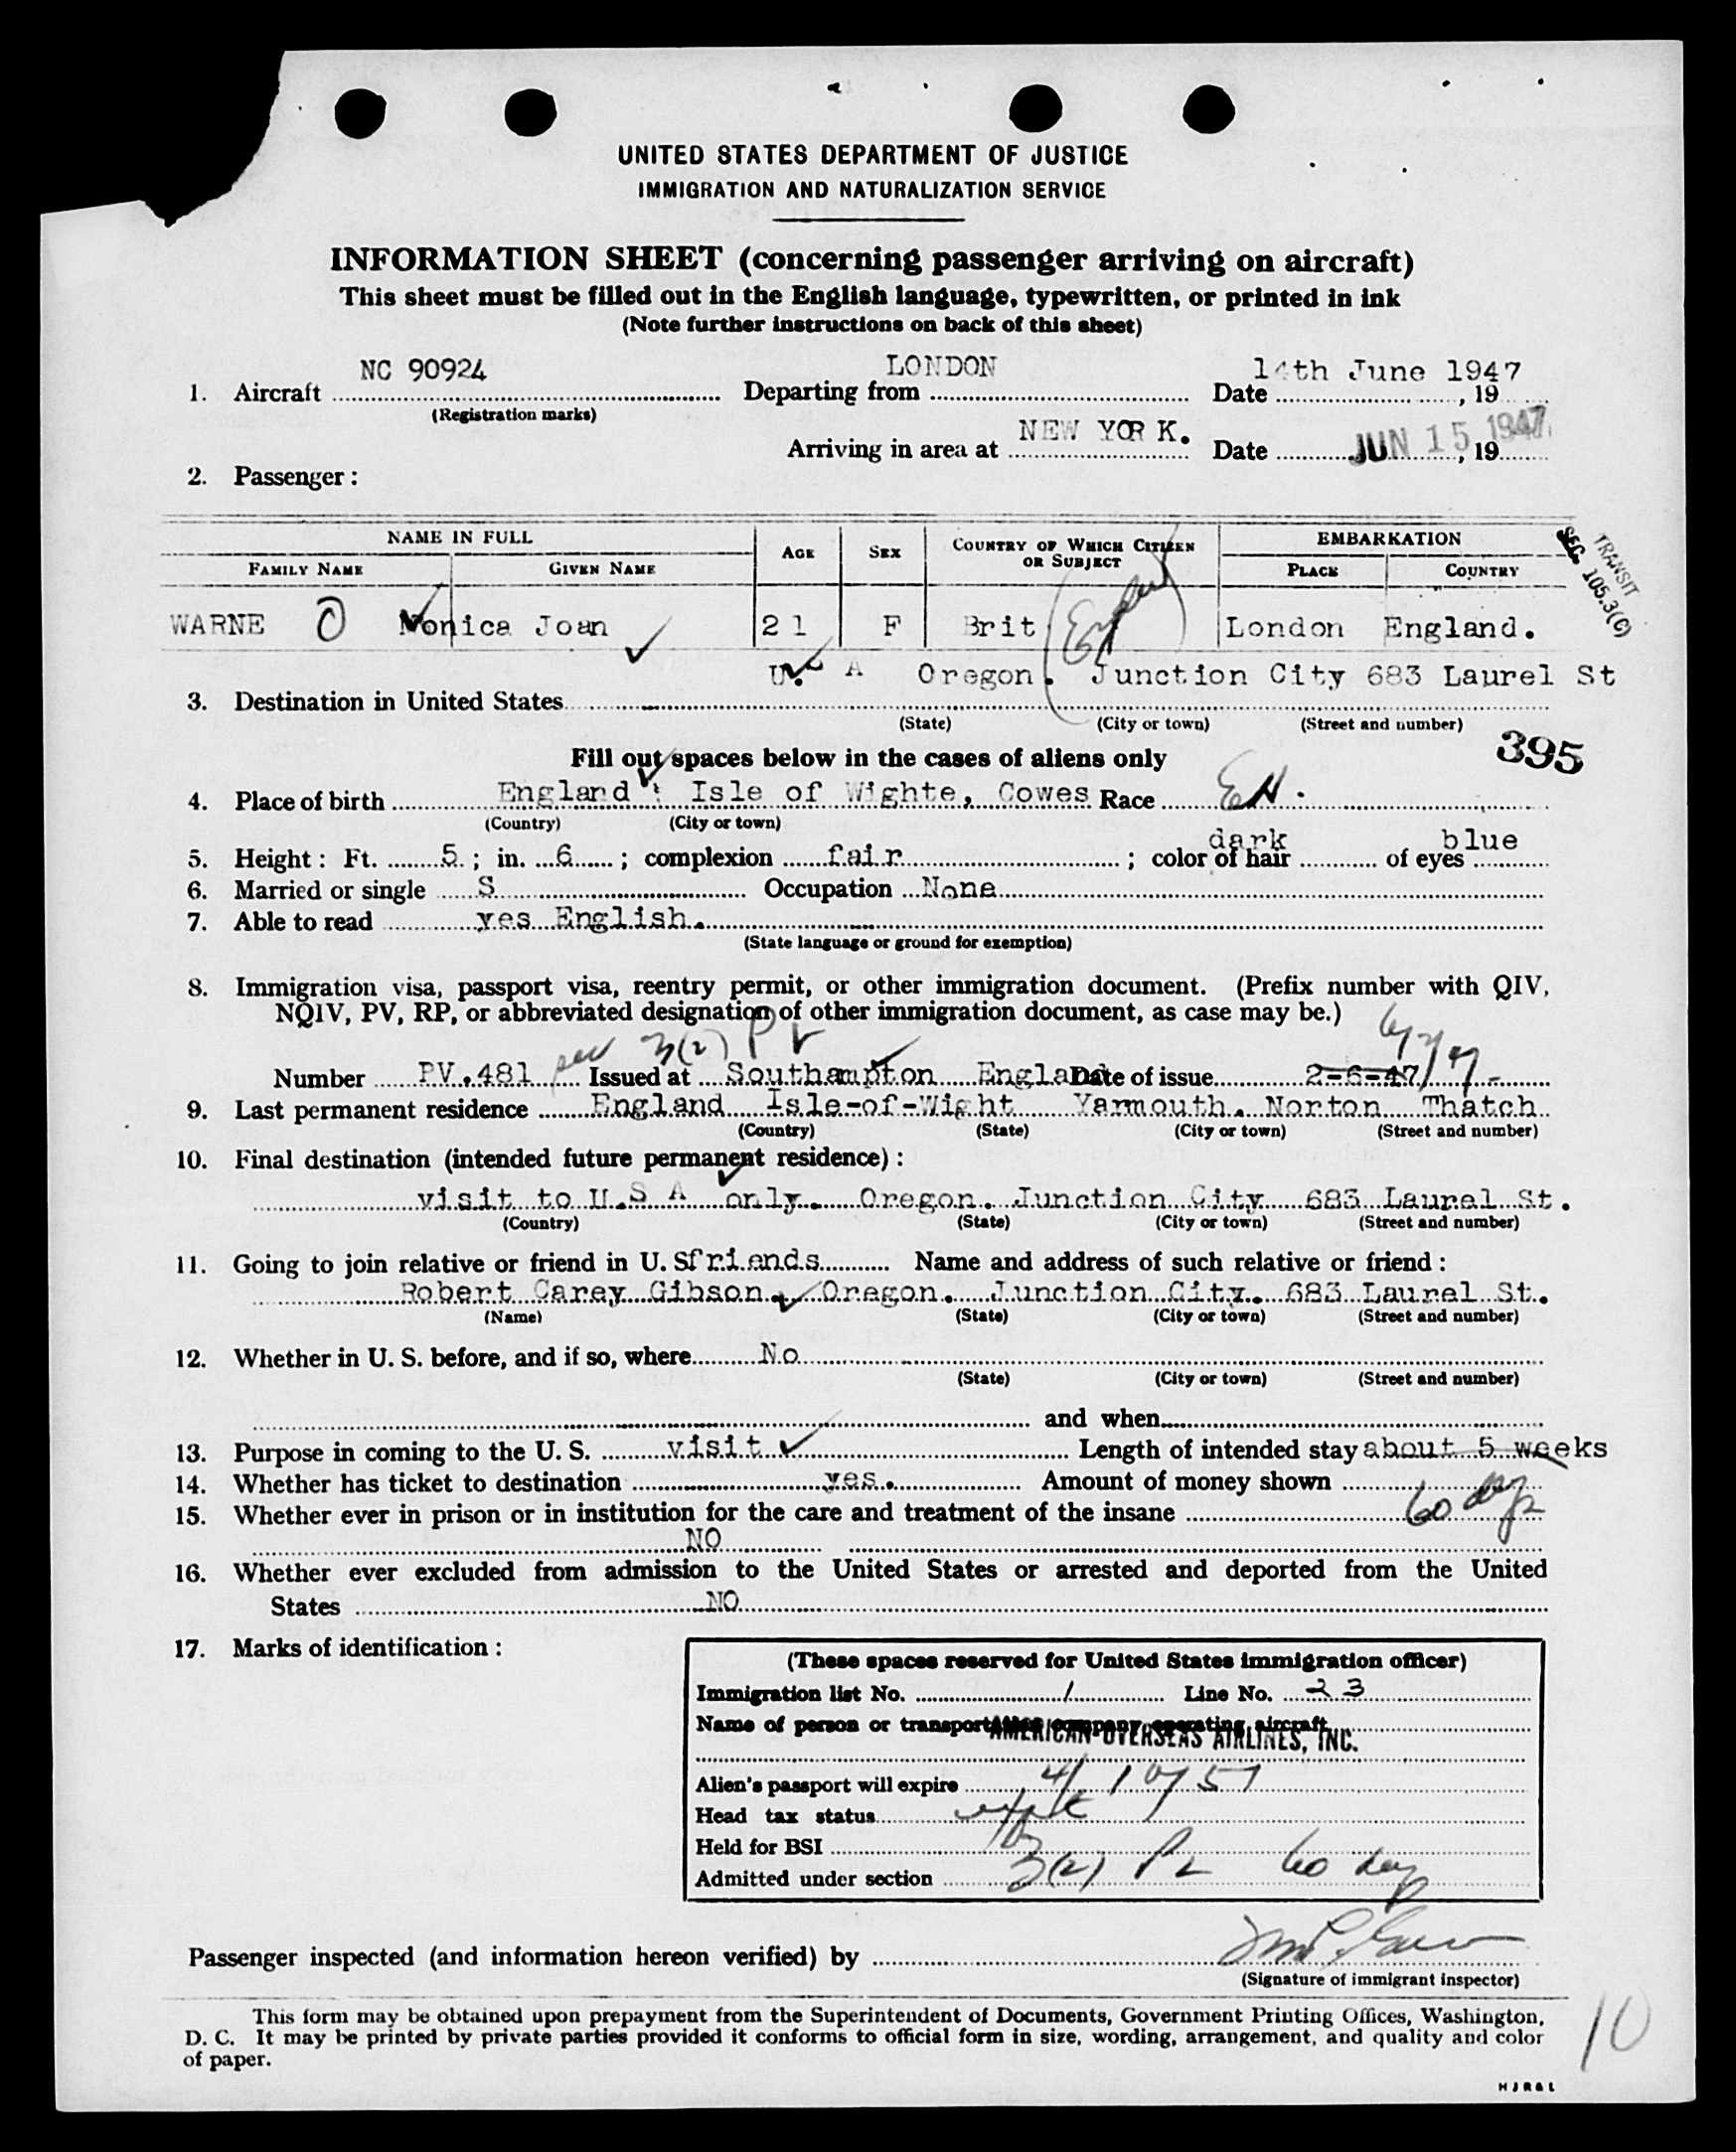 UNITED STATES DEPARTMENT OF JUSTICE
IMMIGRATION AND NATURALIZATION SERVICE
INFORMATION SHEET (concerning passenger arriving on aircraft)
This sheet must be filled out in the English language, typewritten, or printed in ink
(Note further instructions on back of this sheet)
1. Aircraft NC 90924 Departing from LONDON Date 14th June 1947, 19
(Registration marks)
Arriving in area at NEW YORK. Date JUN 15 1947, 19
2. Passenger:
NAME IN FULL AGE SEX COUNTRY OF WHICH CITIZEN OR SUBJECT EMBARKATION
FAMILY NAME GIVEN NAME PLACE COUNTRY
TRANSIT
SEC. 105.3(C)
WARNE O Monica Joan 21 F Brit (England) London England.
3. Destination in United States U.S A Oregon. Junction City 683 Laurel St
(State) (City or town) (Street and number)
395
Fill out spaces below in the cases of aliens only
4. Place of birth England: Isle of Wighte, Cowes Race EN.
(Country) (City or town)
5. Height: Ft. 5; in. 6; complexion fair; color of hair dark of eyes blue
6. Married or single S Occupation None
7. Able to read yes English.
(State language or ground for exemption)
8. Immigration visa, passport visa, reentry permit, or other immigration document. (Prefix number with QIV,
NQIV, PV, RP, or abbreviated designation of other immigration document, as case may be.)
sec 3(2) PV
Number PV.481 Issued at Southampton England Date of issue 2-6-47
9. Last permanent residence England Isle-of-Wight Yarmouth. Norton Thatch
(Country) (State) (City or town) (Street and number)
10. Final destination (intended future permanent residence):
visit to U.S A only. Oregon. Junction City 683 Laurel St.
(Country) (State) (City or town) (Street and number)
11. Going to join relative or friend in U. S friends Name and address of such relative or friend:
Robert Carey Gibson. Oregon. Junction City. 683 Laurel St.
(Name) (State) (City or town) (Street and number)
12. Whether in U. S. before, and if so, where No
(State) (City or town) (Street and number)
and when
13. Purpose in coming to the U. S. visit Length of intended stay about 5 weeks
14. Whether has ticket to destination yes. Amount of money shown
60 days
15. Whether ever in prison or in institution for the care and treatment of the insane
NO
16. Whether ever excluded from admission to the United States or arrested and deported from the United
States NO
17. Marks of identification:
(These spaces reserved for United States immigration officer)
Immigration list No. 1 Line No. 23
Name of person or transportation company operating aircraft
AMERICAN OVERSEAS AIRLINES, INC.
Alien's passport will expire 4/10/57
Head tax status
Held for BSI
Admitted under section 3(2) PV 60 days
Passenger inspected (and information hereon verified) by
(Signature of immigrant inspector)
This form may be obtained upon prepayment from the Superintendent of Documents, Government Printing Offices, Washington,
D. C. It may be printed by private parties provided it conforms to official form in size, wording, arrangement, and quality and color
of paper.
10
HJR&L